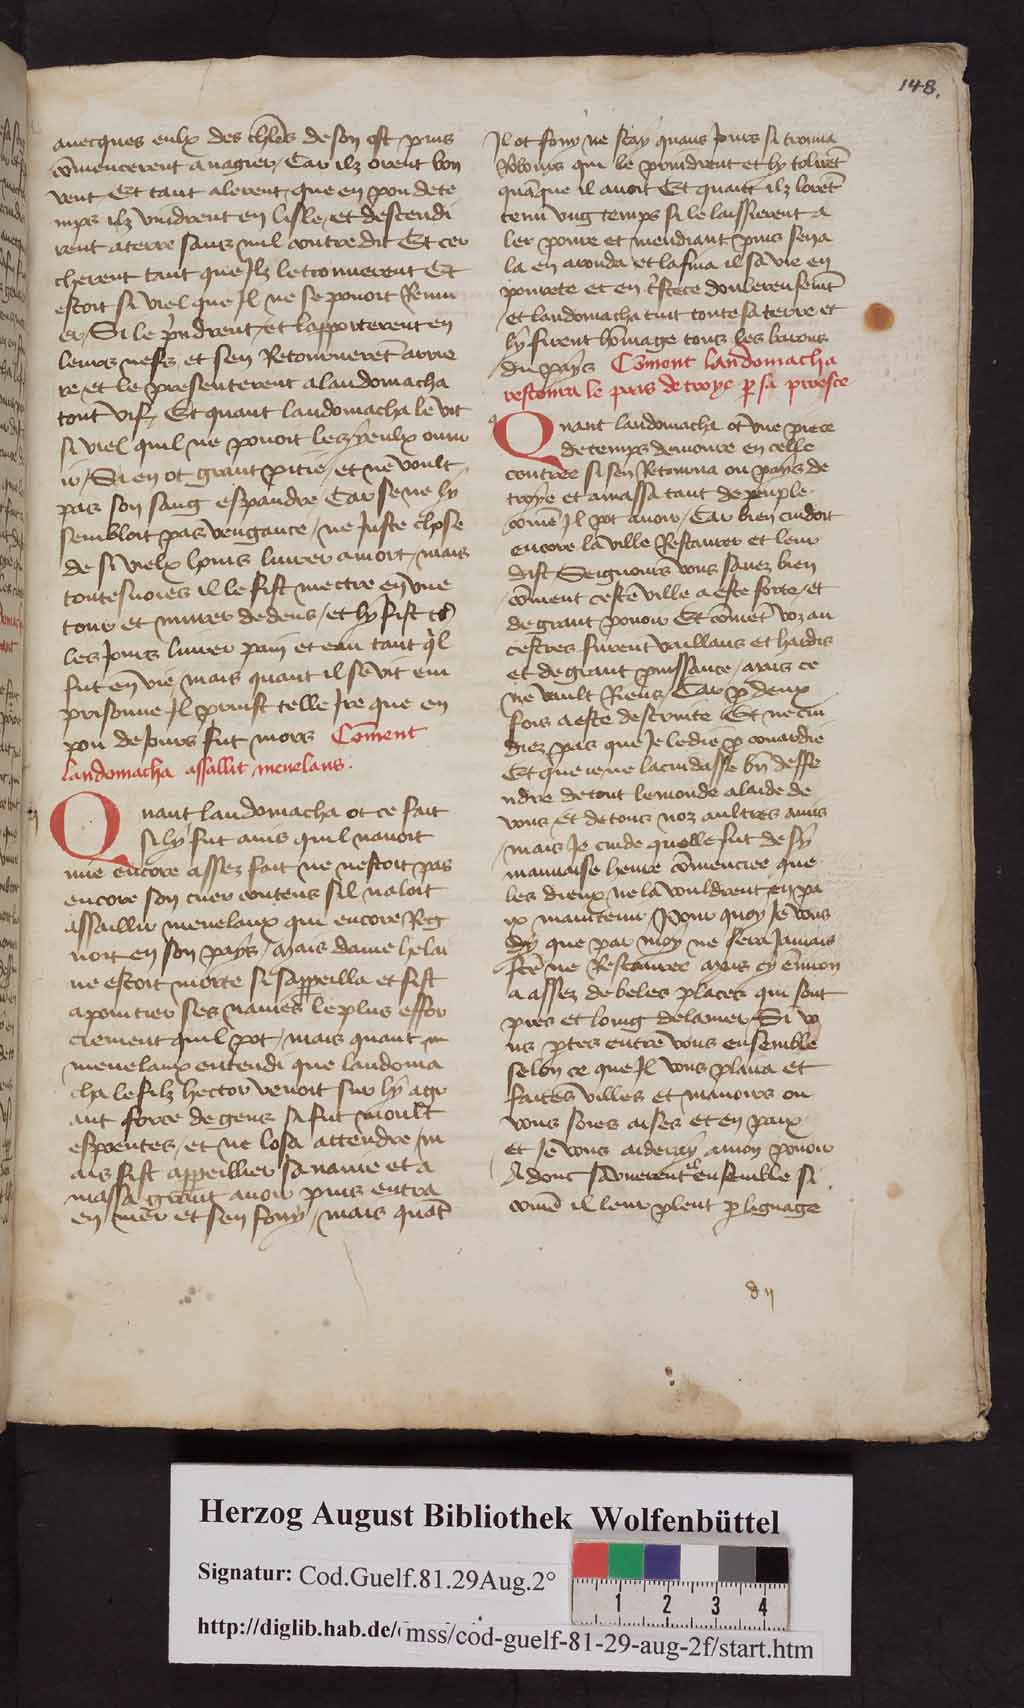 148.
auecques eulx des chl̄rs de son ost puis
cōmencerent a nagier / Car ilz orent bon
vent Et tant alerent que en pou de te
mps ilz vindrent en lisle / et descendi
rent a terre sans nul contredit Et cer
cherent tant que Ilz le trouuerent Et
estoit si viel que Il ne se pouoit Remu
er / Si le p̄ndrent / et lapporterent en
leurs nefs et sen Retournerēt arrie
re et le presenterent a landomacha
tout vif / Et quant landomacha le vit
si viel quil ne pouoit les yeulx ouur
ir / Si en ot grant pitie / et ne voult
pas son sang espandre / Car se ne ly
sembloit pas vengance / ne Juste chose
de si vielx home liurer a mort / mais
toutesuoies il le fist mectre en vne
tour et murer dedens / et ly fist to9
les Jours liurer pain et eau tant q̄l
fut en vie / mais quant il se vit em
prisonne Il prinst telle Ire que en
pou de Jours fut mors Cōment
landomacha assallit menelaus .
Quant landomacha ot ce fait
si ly fut auis quil nauoit
mie encore assez fait ne nestoit pas
encore son cuer contens sil naloit
assaillir menelaux qui encore Reg
noit en son pays / mais dame helai
ne estoit morte si sappeilla et fist
apointier ses nauies le plus effor
ciement quil pot / mais quant
menelaux entendi que landoma
cha le filz hector venoit sur ly a gr
ant force de gens si fut moult
espoentes / et ne losa attendre / m
ais fist appeillier sa nauie et a
massa grant auoir puis entra
en mer et sen fouy / mais quāt
Il ot fouy ne scay quans Jours si trouua
Robeurs qui le prindrent et ly tolirēt
quāque il auoit Et quant ilz lorēt
tenu vng temps si le laissierent a
ler poure et mendiant puis sen a
la en aronda et la fina il sa vie en
pourete et en t̄stece doulereusemēt
et landomacha tint toute sa terre et
ly firent hōmage tous les barons
du pays Cōment landomacha
restoura le pais de troye p sa proesce
Quant landomacha ot vne piece
de temps demoure en celle
contree si sen Retourna ou pays de
troye et amassa tant de peuple
comē Il pot auoir / Car bien cuidoit
encore la ville Restaurer et leur
dist Seigneurs vous sauez bien
cōment ceste ville a este forte / et
de grant pouoir Et cōmēt voz an
cestres furent vaillans et hardis
et de grant puissance / mais ce
ne vault Riens / Car p deux
fois a este destruite Et ne cui
diez pas que Je le die p couardie
Et que ie ne la cuidasse bn̄ deffe
ndre de tout le monde a laide de
vous et de tous noz aultres amis
/ mais Je cuide quelle fut de sy
mauuaise heure cōmencee que
les dieux ne la vouldrent en pa
ix maintenir / Pour quoy Je vous
dy que par moy ne sera Jamais
ſcē ne Restauree mais cy enuiron
a assez de beles places qui sont
pres et loing de la mer / Si vo
us ptes entre vous ensemble
selon ce que Il vous plaira et
faites villes et manoirs ou
vous soies aises et en paix
et Je vous aideray a mon pouoir
A donc saduerent ensemble si
comē il leur pleut p lignage
d ij
Herzog August Bibliothek Wolfenbüttel
Signatur: Cod.Guelf.81.29Aug.2°
1 2 3 4
http://diglib.hab.de/mss/cod-guelf-81-29-aug-2f/start.htm